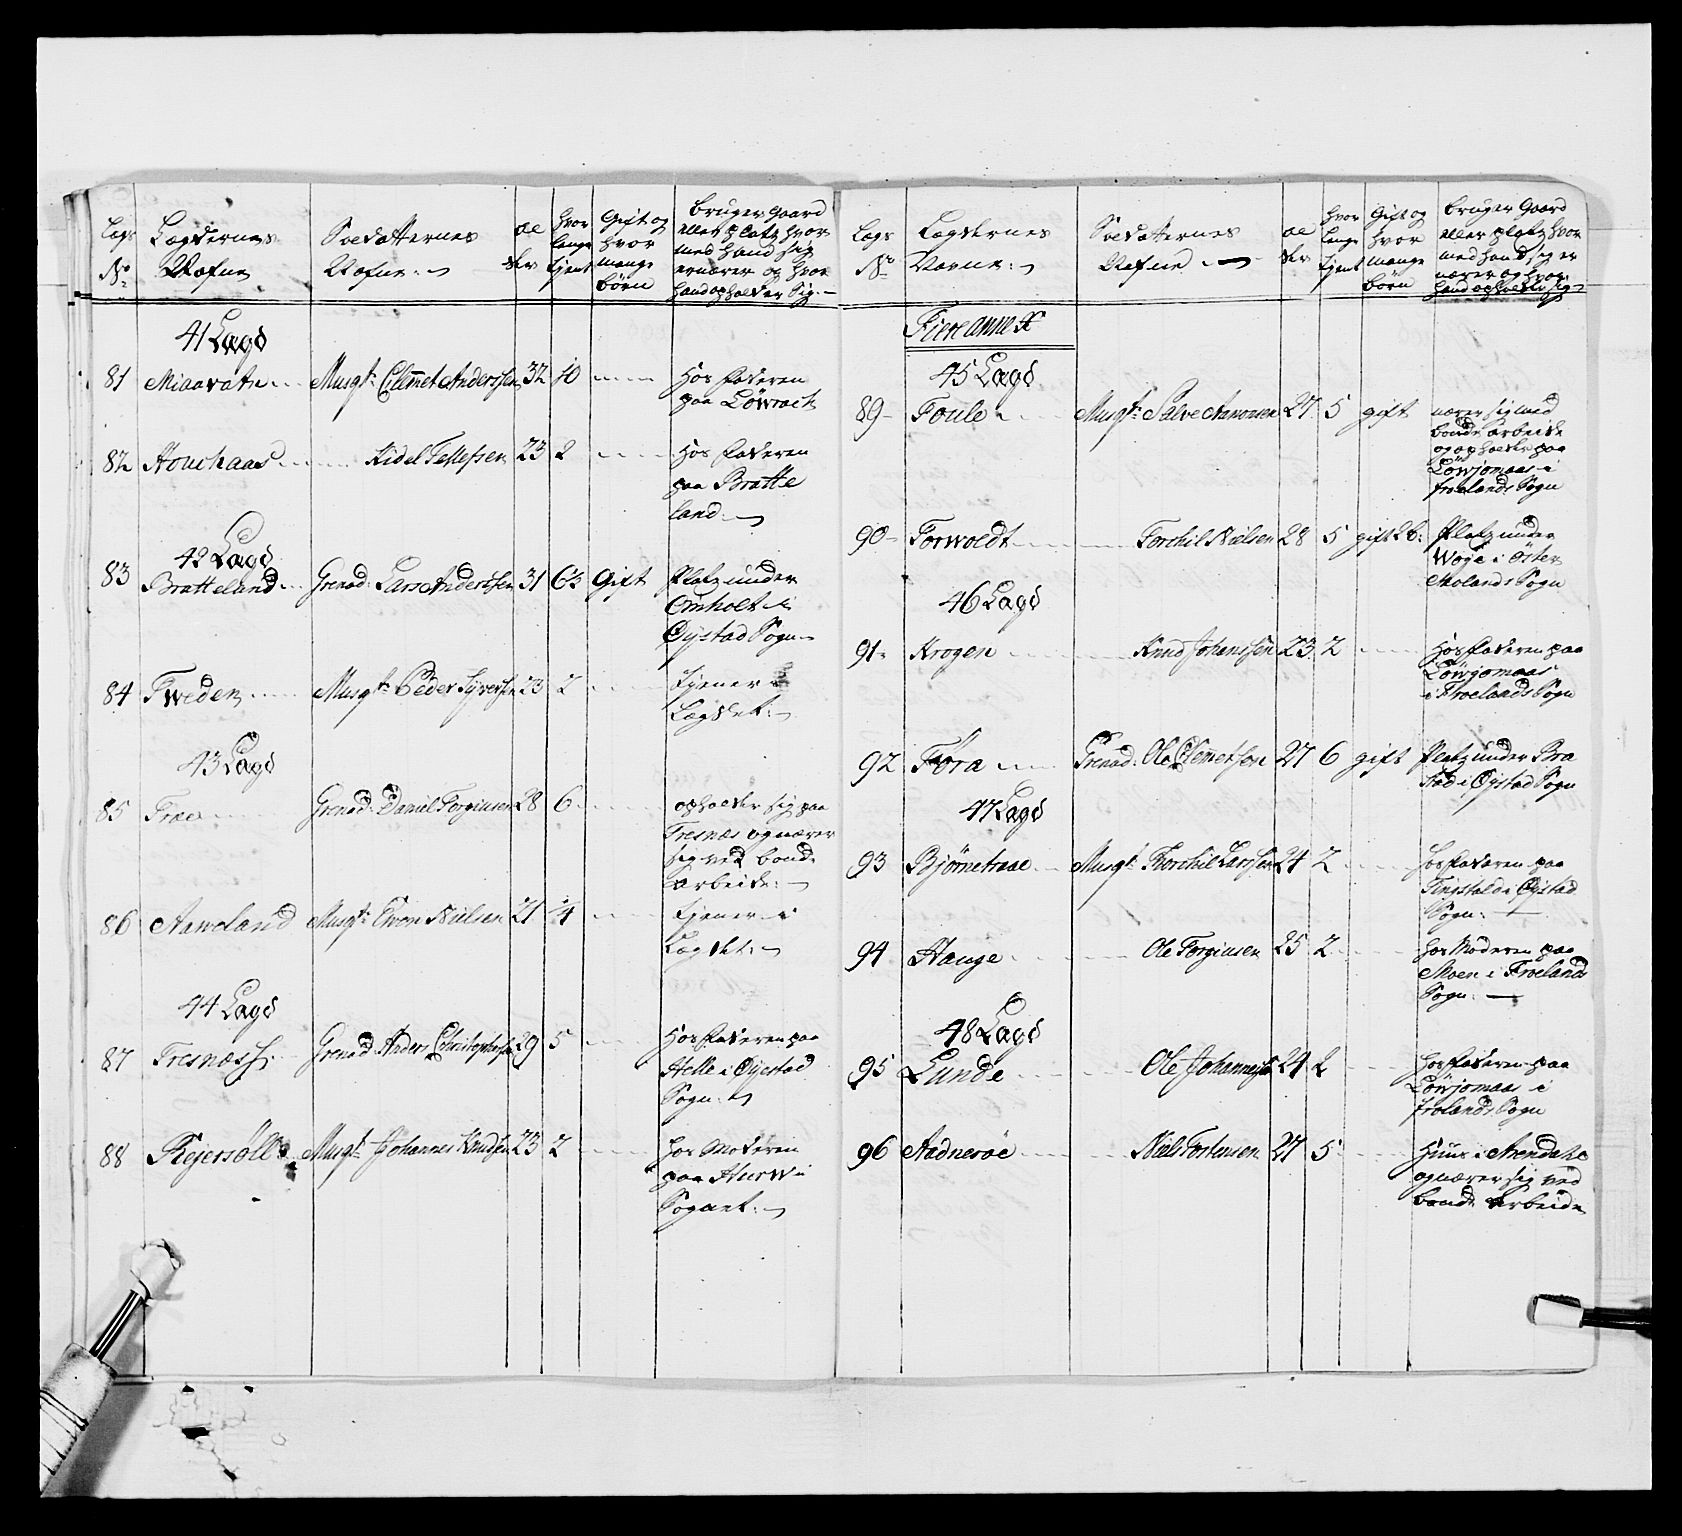 Lags
No
Lægdernes
Nafne
Soldatternes
Nafne
al
der
hvor
længe
tjent
Gift og
hvor
mange
börn
bruger Gaard
eller platz hvor
med hand sig
ernærer og hvor
hand opholder sig
41 Lægd
81 Miaavatn Musqt: Clemet Anderssen 32 10 Hos faderen
paa Löwrack
82 Houchaas Kidel Tellefsen 23 2 Hos faderen
paa Bratte
land
42 Lægd
83 Bratteland Grenad: Lars Anderssen 31 6½ Gift Platz under
Omholt i
Öystad Sogn
84 Tweden Musqt: Peder Syversen 23 2 Tjener i
Lægdet
43 Lægd
85 Træe Grenad: Daniel Torgiusen 28 6 opholder sig paa
Tresnæs og nærer
sig ved bonde
Arbeide
86 Aaweland Musqt: Even Nielsen 21 ¼ Tjener i
Lægdet
44 Lægd
87 Tresnæss Grenad Anders Christophersen 29 5 Hos faderen paa
Helle i Öyestad
Sogn
88 Rejersöll Musqt: Johannes Knudsen 23 2 hos Moderen
paa
Sognet
Lags
No
Lægdernes
Navne
Soldatternes
Nafne
al
der
hvor
længe
tjent
Gift og
hvor
mange
börn
bruger Gaard
eller platz hvor
med hand sig er
nærer og hvor
hand opholder sig
Fiere annex
45 Lægd
89 Foule Musqt: Salve Aanonsen 27 5 gift nærer sig med
bonde arbeide
og opholder paa
Löwjomaas i
froelands Sogn
90 Torwoldt Torchil Nielsen 28 5 gift 2 b: Platz under
Woje i Öster
Molands Sogn
46 Lægd
91 Krogen Knud Johanssen 23 2 Hos faderen paa
Löwjomaas
i Froelands Sogn
92 Föra Grenad: Ole Clemetsen 27 6 gift Platz under Bra
stad i Öystad Sogn
47 Lægd
93 Bjørnetraae Musqt: Torchil Larssen 24 2 hos faderen paa
Tingstold i Öystad
Sogn
94 Hauge Ole Torgiusen 25 2 hos Moderen paa
Moen i Froeland
Sogn
48 Lægd
95 Lunde Ole Johannessen 24 2 hos faderen paa
Löwjomaas i
frolands Sogn
96 Aadneröe Niels Torkensen 27 5 Huus i Arendahl
og nærer sig ved
bonde Arbeide